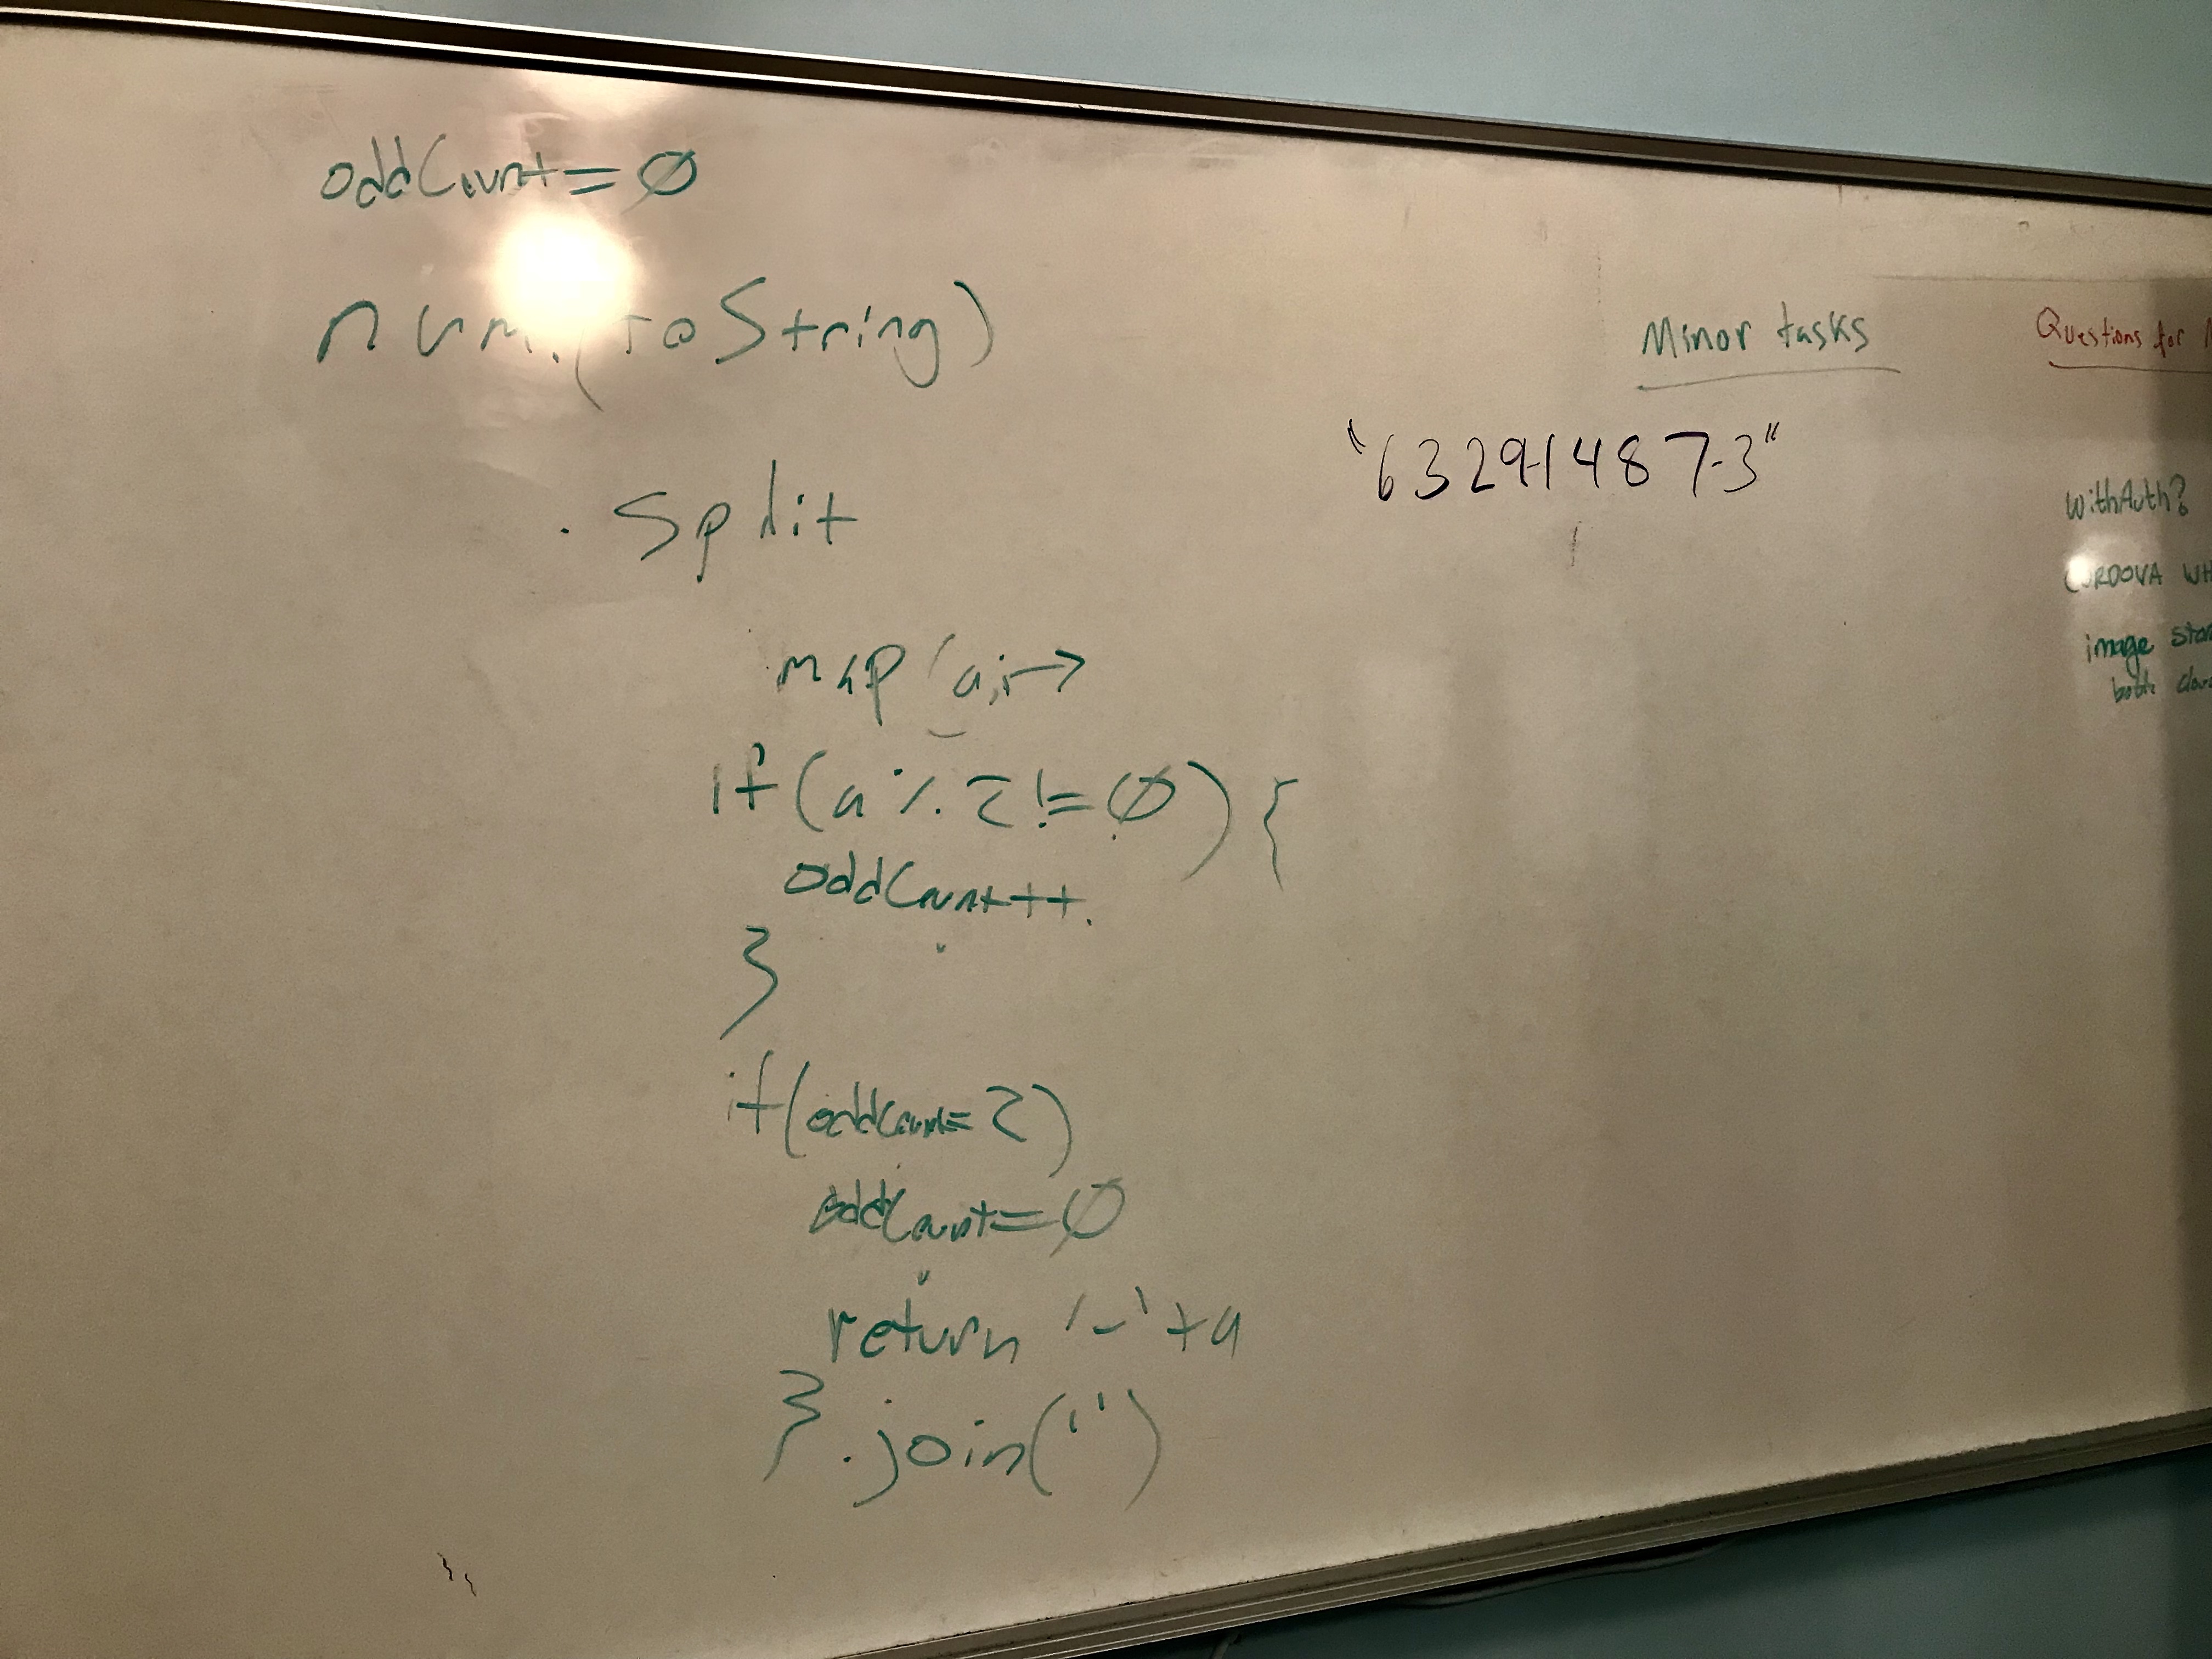 oddCount=Ø
num.(toString)
.split
map(a,i→
if(a%2!=Ø){
oddCount++.
}
if(oddCount=2)
oddCount=Ø
return '-'+a
}.join('')
Minor tasks
"6329-1487-3"
Questions for
WithAuth?
CORDOVA
image
both